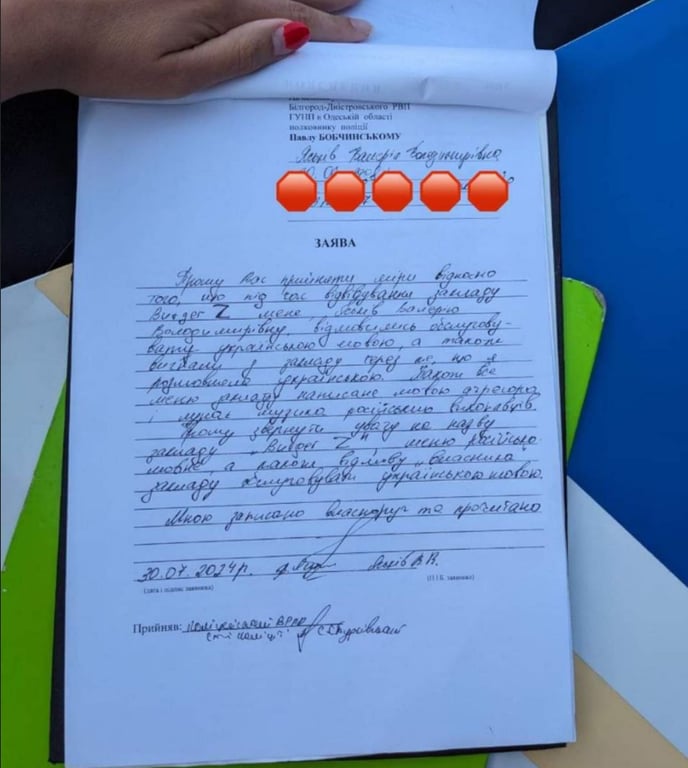 Білгород-Дністровського РВП
ГУНП в Одеській області
полковнику поліції
Павлу БОБЧИНСЬКОМУ
Яськів Валерія Володимирівна
ЗАЯВА
Прошу Вас прийняти міри відносно
того, що під час відвідування закладу
Budget Z мене, Яськів Валерію
Володимирівну, відмовились обслугову-
вати українською мовою, а також
вигнали з закладу через те, що я
розмовляла українською. Також все
меню закладу написане мовою агресора
і лунає музика російських виконавців.
Прошу звернути увагу на назву
закладу „Budget Z", меню російсько-
мовне, а також відмову „власника"
закладу обслуговувати українською мовою.
Мною записано власноруч та прочитано
30.07.2024р. Яськів В.В.
(дата і підпис заявника) (П.І.Б. заявника)
Прийняв: поліцейський ВРПП